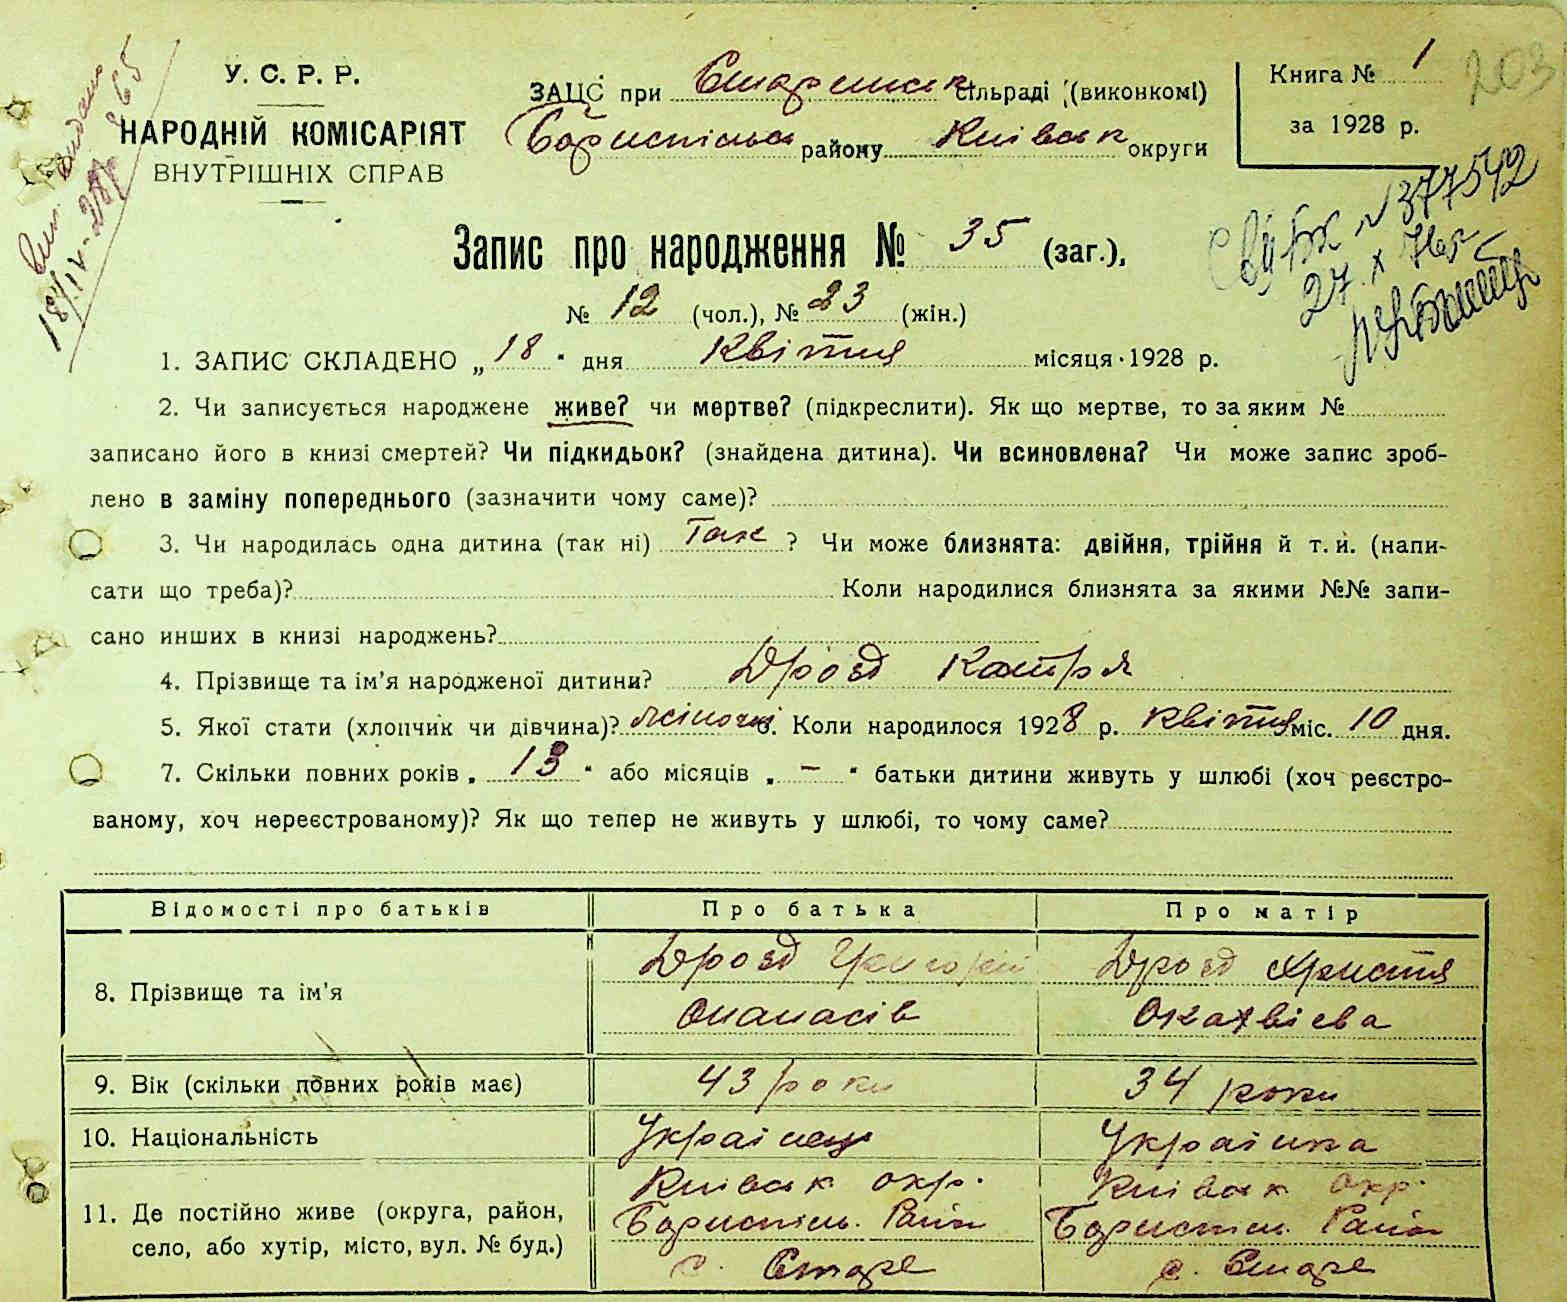 У. С. Р. Р.
НАРОДНІЙ КОМІСАРІЯТ
ВНУТРІШНІХ СПРАВ
ЗАЦС при Старинск. сільраді (виконкомі)
Бориспільск району Київськ округи
Книга № 1
за 1928 р.
203
Запис про народження № 35 (заг.),
№ 12 (чол.), № 23 (жін.)
1. ЗАПИС СКЛАДЕНО „18“ дня Квітня місяця 1928 р.
2. Чи записується народжене живе? чи мертве? (підкреслити). Як що мертве, то за яким №
записано його в книзі смертей? Чи підкидьок? (знайдена дитина). Чи всиновлена? Чи може запис зроб-
лено в заміну попереднього (зазначити чому саме)?
3. Чи народилась одна дитина (так ні) Так ? Чи може близнята: двійня, трійня й т. и. (напи-
сати що треба)? Коли народилися близнята за якими №№ запи-
сано инших в книзі народжень?
4. Прізвище та ім'я народженої дитини? Дрозд Катря
5. Якої стати (хлопчик чи дівчина)? жіночі 6. Коли народилося 1928 р. Квітня міс. 10 дня.
7. Скільки повних років „13“ або місяців „–“ батьки дитини живуть у шлюбі (хоч реєстро-
ваному, хоч нереєстрованому)? Як що тепер не живуть у шлюбі, то чому саме?
Відомості про батьків Про батька Про матір
8. Прізвище та ім'я
Дрозд Григорій Дрозд Христя
Опанасів
9. Вік (скільки повних років має) 43 роки 34 роки
10. Національність Українець Українка
11. Де постійно живе (округа, район,
село, або хутір, місто, вул. № буд.)
Київськ окр. Київськ окр.
Бориспіль. Район Бориспіль. Район
с. Старе с. Старе